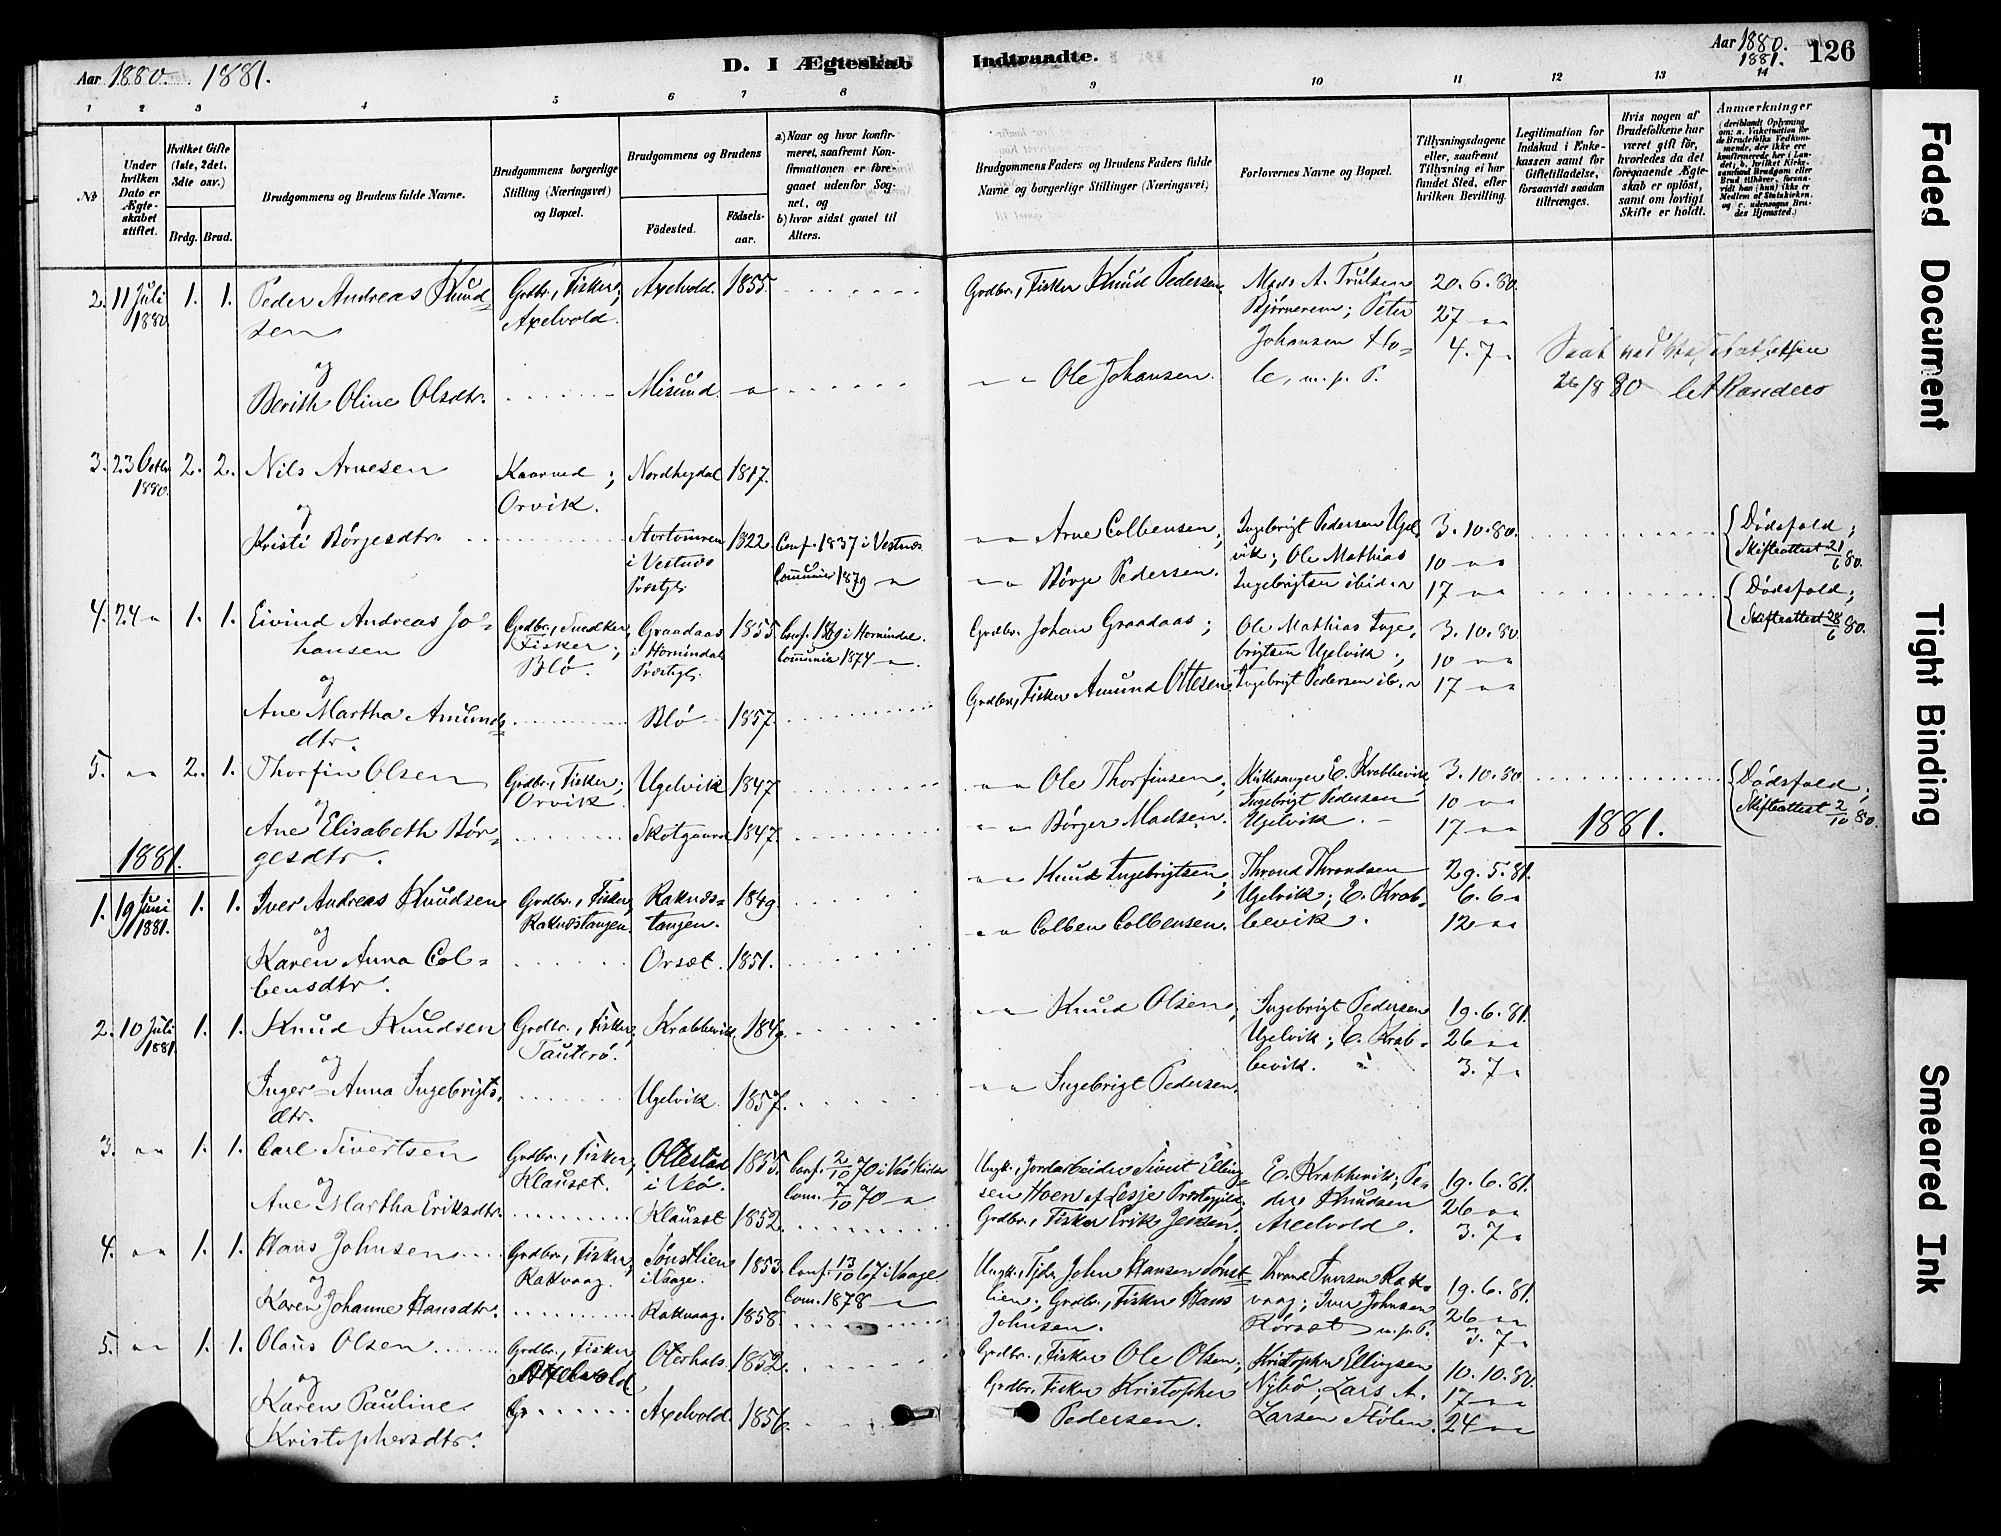 Aar 1880. 1881.
D. I Ægteskab Indtraadte.
Aar 1880.
1881.
126
1 2 3 4 5 6 7 8 9 10 11 12 13 14
No
Under hvilken Dato er Ægteskabet stiftet.
Hvilket Gifte (1ste, 2det, 3die osv.)
Brdg. Brud.
Brudgommens og Brudens fulde Navne.
Brudgommens borgerlige Stilling (Næringsvei) og Bopæl.
Brudgommens og Brudens
Födested.
Födsels-aar.
a) Naar og hvor konfirmeret, saafremt Konfirmationen er foregaaet udenfor Sognet, og
b) hvor sidst gaaet til Alters.
Brudgommens Faders og Brudens Faders fulde Navne og borgerlige Stillinger (Næringsvei)
Forlovernes Navne og Bopæl.
Tillysningsdagene eller, saafremt Tillysning ei har fundet Sted, efter hvilken Bevilling.
Legitimation for Indskud i Enkekassen samt for Giftetilladelse, forsaavidt saadan tiltrænges.
Hvis nogen af Brudefolkene har været gift för, hvorledes da det foregaaende Ægteskab er oplöst, samt om lovligt Skifte er holdt.
Anmærkninger
(deriblandt Oplysning om: a. Vakcination for de Brudefolks Vedkommende, der ikke ere konfirmerede her i Landet; b. hvilket Kirkesamfund Brudgom eller Brud tilhörer, forsaavidt han (hun) ikke er Medlem af Statskirken, og c. udensogns Brudes Hjemsted.)
2. 11 Juli 1880 1. 1. Peder Andreas Knudsen
Grdbr., Fisker; Axelvold.
Axelvold. 1855.
Grdbr., Fisker Knud Pedersen.
Mads A. Trulsen Bjørnerem; Peter Johansen Hole, m. p. P.
20.6.80.
27 " "
4. 7 "
og
Berith Oline Olsdtr.
Misund. "
" " Ole Johansen.
26/8 80
3. 23 Octbr 1880. 2. 2. Nils Arnesen
Kaarmd; Orvik.
Nordheydal 1817.
og
Kristi Børgesdtr.
i Vestnæs Præstgj. 1822.
Conf. 1837 i Vestnæs
Communic 1879 "
" " Arne Colbensen;
" " Børge Pedersen.
Ingebrigt Pedersen Ugelvik; Ole Mathias Ingebrigtsen ibid. "
3.10.80.
10 " "
17 " "
Dødsfald;
Skifteattest 21/6 80.
Dødsfald;
Skifteattest 28/6 80.
4. 24 " 1. 1. Eivind Andreas Johansen
Grdbr., Snedker, Fisker; Blø.
Graadaas i Hornindal Præstgj. 1855.
Conf. 1869 i Hornindal.
Communic 1874 "
Grdbr. Johan Graadaas;
Ole Mathias Ingebrigtsen Ugelvik;
Ingebrigt Pedersen ib. "
3.10.80.
10 " "
17 " "
og
Ane Martha Amundsdtr.
Blø 1857.
Grdbr., Fisker Amund Ottesen.
5. " " 2. 1. Thorfin Olsen
Grdbr., Fisker; Orvik.
Ugelvik 1847
" " Ole Thorfinsen;
Kirkesanger E. Krabbevik,
Ingebrigt Pedersen Ugelvik.
3.10.80
10 " "
17 " "
Dødsfald;
Skifteattest 2/10 80.
og
Ane Elisabeth Børgesdtr.
Skotgaard 1847.
" " Børger Madsen.
1881. 1881.
1. 19 Juni 1881. 1. 1. Iver Andreas Knudsen
Grdbr., Fisker, Raknæstangen.
Raknæstangen. 1849.
" " Knud Ingebrigtsen;
Thrond Throndsen Ugelvik; E. Krabbevik.
29.5.81.
6. 6 "
12 " "
og
Karen Anna Colbensdtr.
Orsæt. 1851.
" " Colben Colbensen.
2. 10 Juli 1881. 1. 1. Knud Knudsen
Grdbr., Fisker, Tauterø.
Krabbevik. 1849.
" " Knud Olsen;
Ingebrigt Pedersen Ugelvik; E. Krabbevik.
19.6.81.
26 " "
3. 7 "
og
Inger-Anna Ingebrigtsdtr.
Ugelvik 1857.
" " Ingebrigt Pedersen.
3. " " 1. 1. Carl Sivertsen
Grdbr., Fisker; Klauset.
Oltestad i Veø. 1855.
Conf. 2/10 70 i Veø Kirke
Com. 7/10 70 "
Ungk., Jordarbeider Sivert Ellingsen Hoen af Lesje Præstegjeld;
E. Krabbevik; Peder Knudsen Axelvold.
19.6.81.
26 " "
3. 7 "
og
Ane Martha Eriksdtr.
Klauset 1852.
Grdbr., Fisker Erik Jensen.
4. " " 1. 1. Hans Johnsen
Grdbr., Fisker, Rakvaag.
Sønstlien i Vaage. 1853.
Conf. 13/10 67 i Vaage
Com. 1878 "
Ungk., Tjdr. John Hansen Sønstlien; Grdbr., Fisker Hans Johnsen.
Thrond Iversen Rakvaag; Iver Johnsen Korset m. p. P.
19.6.81.
26 " "
3. 7 "
og
Karen Johanne Hansdtr.
Rakvaag. 1858.
5. " " 1. 1. Olaus Olsen
Grdbr., Fisker Axelvold
Oterhals. 1852.
Grdbr., Fisker Ole Olsen;
Kristopher Ellingsen Nybø; Lars A. Larsen Stølen.
10.10.80.
17 " "
24 " "
og
Karen Pauline Kristophersdtr.
Axelvold. 1856.
Grdbr. Fisker Kristopher Pedersen.
Faded Document
Tight Binding
Smeared Ink